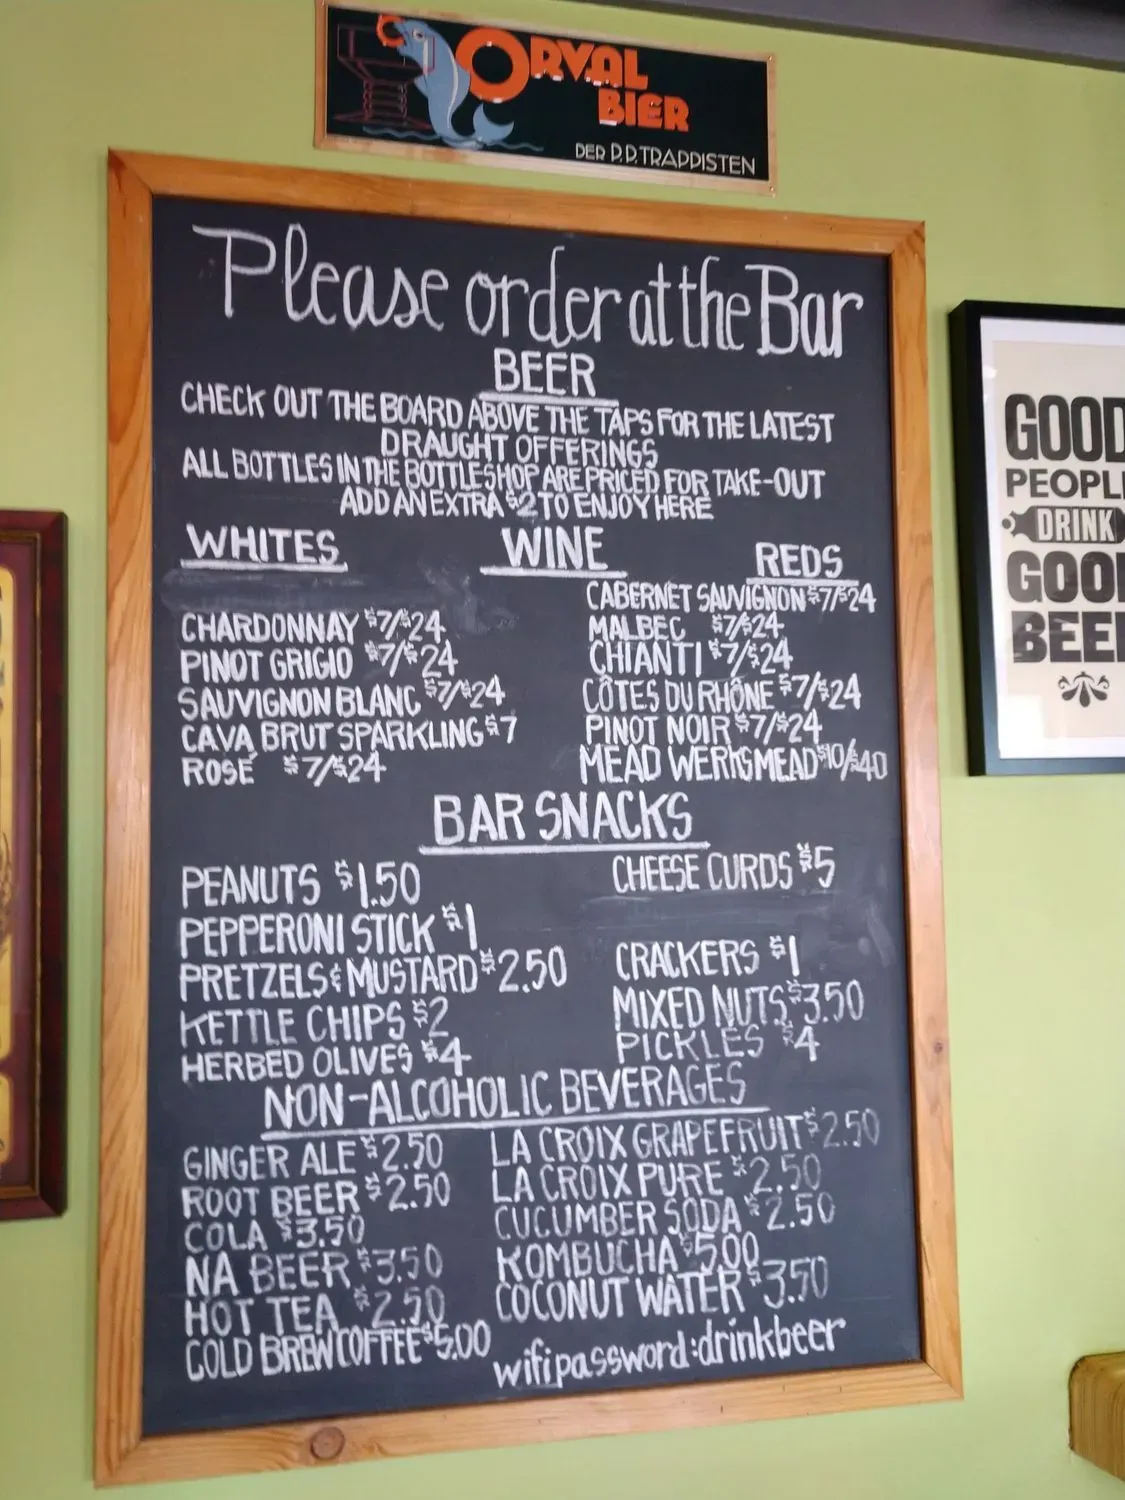 ORVAL
BIER
DER P.P. TRAPPISTEN
Please order at the Bar
BEER
CHECK OUT THE BOARD ABOVE THE TAPS FOR THE LATEST
DRAUGHT OFFERINGS
ALL BOTTLES IN THE BOTTLESHOP ARE PRICED FOR TAKE-OUT
ADD AN EXTRA $2 TO ENJOY HERE
WINE
WHITES
CHARDONNAY $7/$24
PINOT GRIGIO $7/$24
SAUVIGNON BLANC $7/$24
CAVA BRUT SPARKLING $7
ROSÉ $7/$24
REDS
CABERNET SAUVIGNON $7/$24
MALBEC $7/$24
CHIANTI $7/$24
CÔTES DU RHÔNE $7/$24
PINOT NOIR $7/$24
MEAD WERKS MEAD $10/$40
BAR SNACKS
PEANUTS $1.50
PEPPERONI STICK $1
PRETZELS & MUSTARD $2.50
KETTLE CHIPS $2
HERBED OLIVES $4
CHEESE CURDS $5
CRACKERS $1
MIXED NUTS $3.50
PICKLES $4
NON-ALCOHOLIC BEVERAGES
GINGER ALE $2.50
ROOT BEER $2.50
COLA $3.50
NA BEER $3.50
HOT TEA $2.50
COLD BREW COFFEE $5.00
LA CROIX GRAPEFRUIT $2.50
LA CROIX PURE $2.50
CUCUMBER SODA $2.50
KOMBUCHA $5.00
COCONUT WATER $3.50
wifi password: drinkbeer
GOOD
PEOPL
DRINK
GOO
BEE